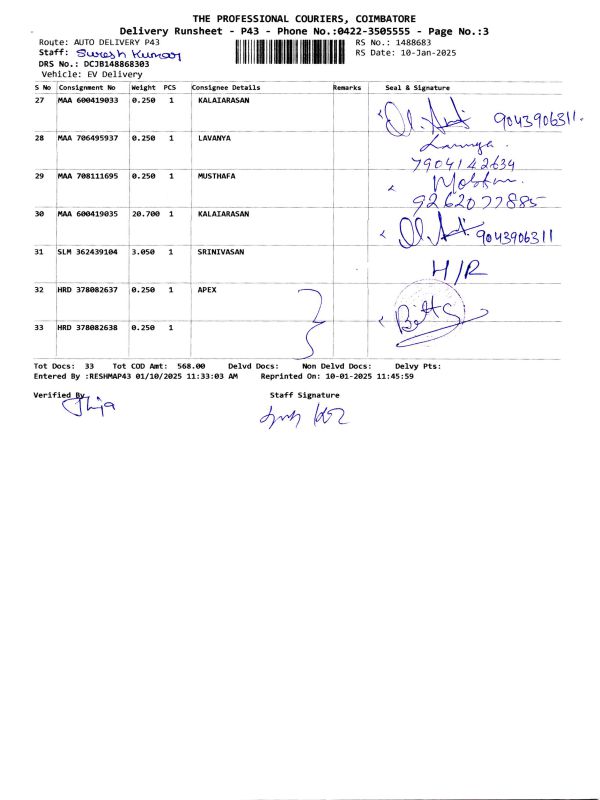 THE PROFESSIONAL COURIERS, COIMBATORE
Delivery Runsheet - P43 - Phone No.:0422-3505555 - Page No.:3
Route: AUTO DELIVERY P43 RS No.: 1488683
Staff: Suresh Kumar RS Date: 10-Jan-2025
DRS No.: DCJB148868303
Vehicle: EV Delivery
S No Consignment No Weight PCS Consignee Details Remarks Seal & Signature
27 MAA 600419033 0.250 1 KALAIARASAN 9043906311.
28 MAA 706495937 0.250 1 LAVANYA
7904142634
29 MAA 708111695 0.250 1 MUSTHAFA
9262077885
30 MAA 600419035 20.700 1 KALAIARASAN 9043906311
31 SLM 362439104 3.050 1 SRINIVASAN H/R
32 HRD 378082637 0.250 1 APEX
33 HRD 378082638 0.250 1
Tot Docs: 33 Tot COD Amt: 568.00 Delvd Docs: Non Delvd Docs: Delvy Pts:
Entered By :RESHMAP43 01/10/2025 11:33:03 AM Reprinted On: 10-01-2025 11:45:59
Verified By Staff Signature